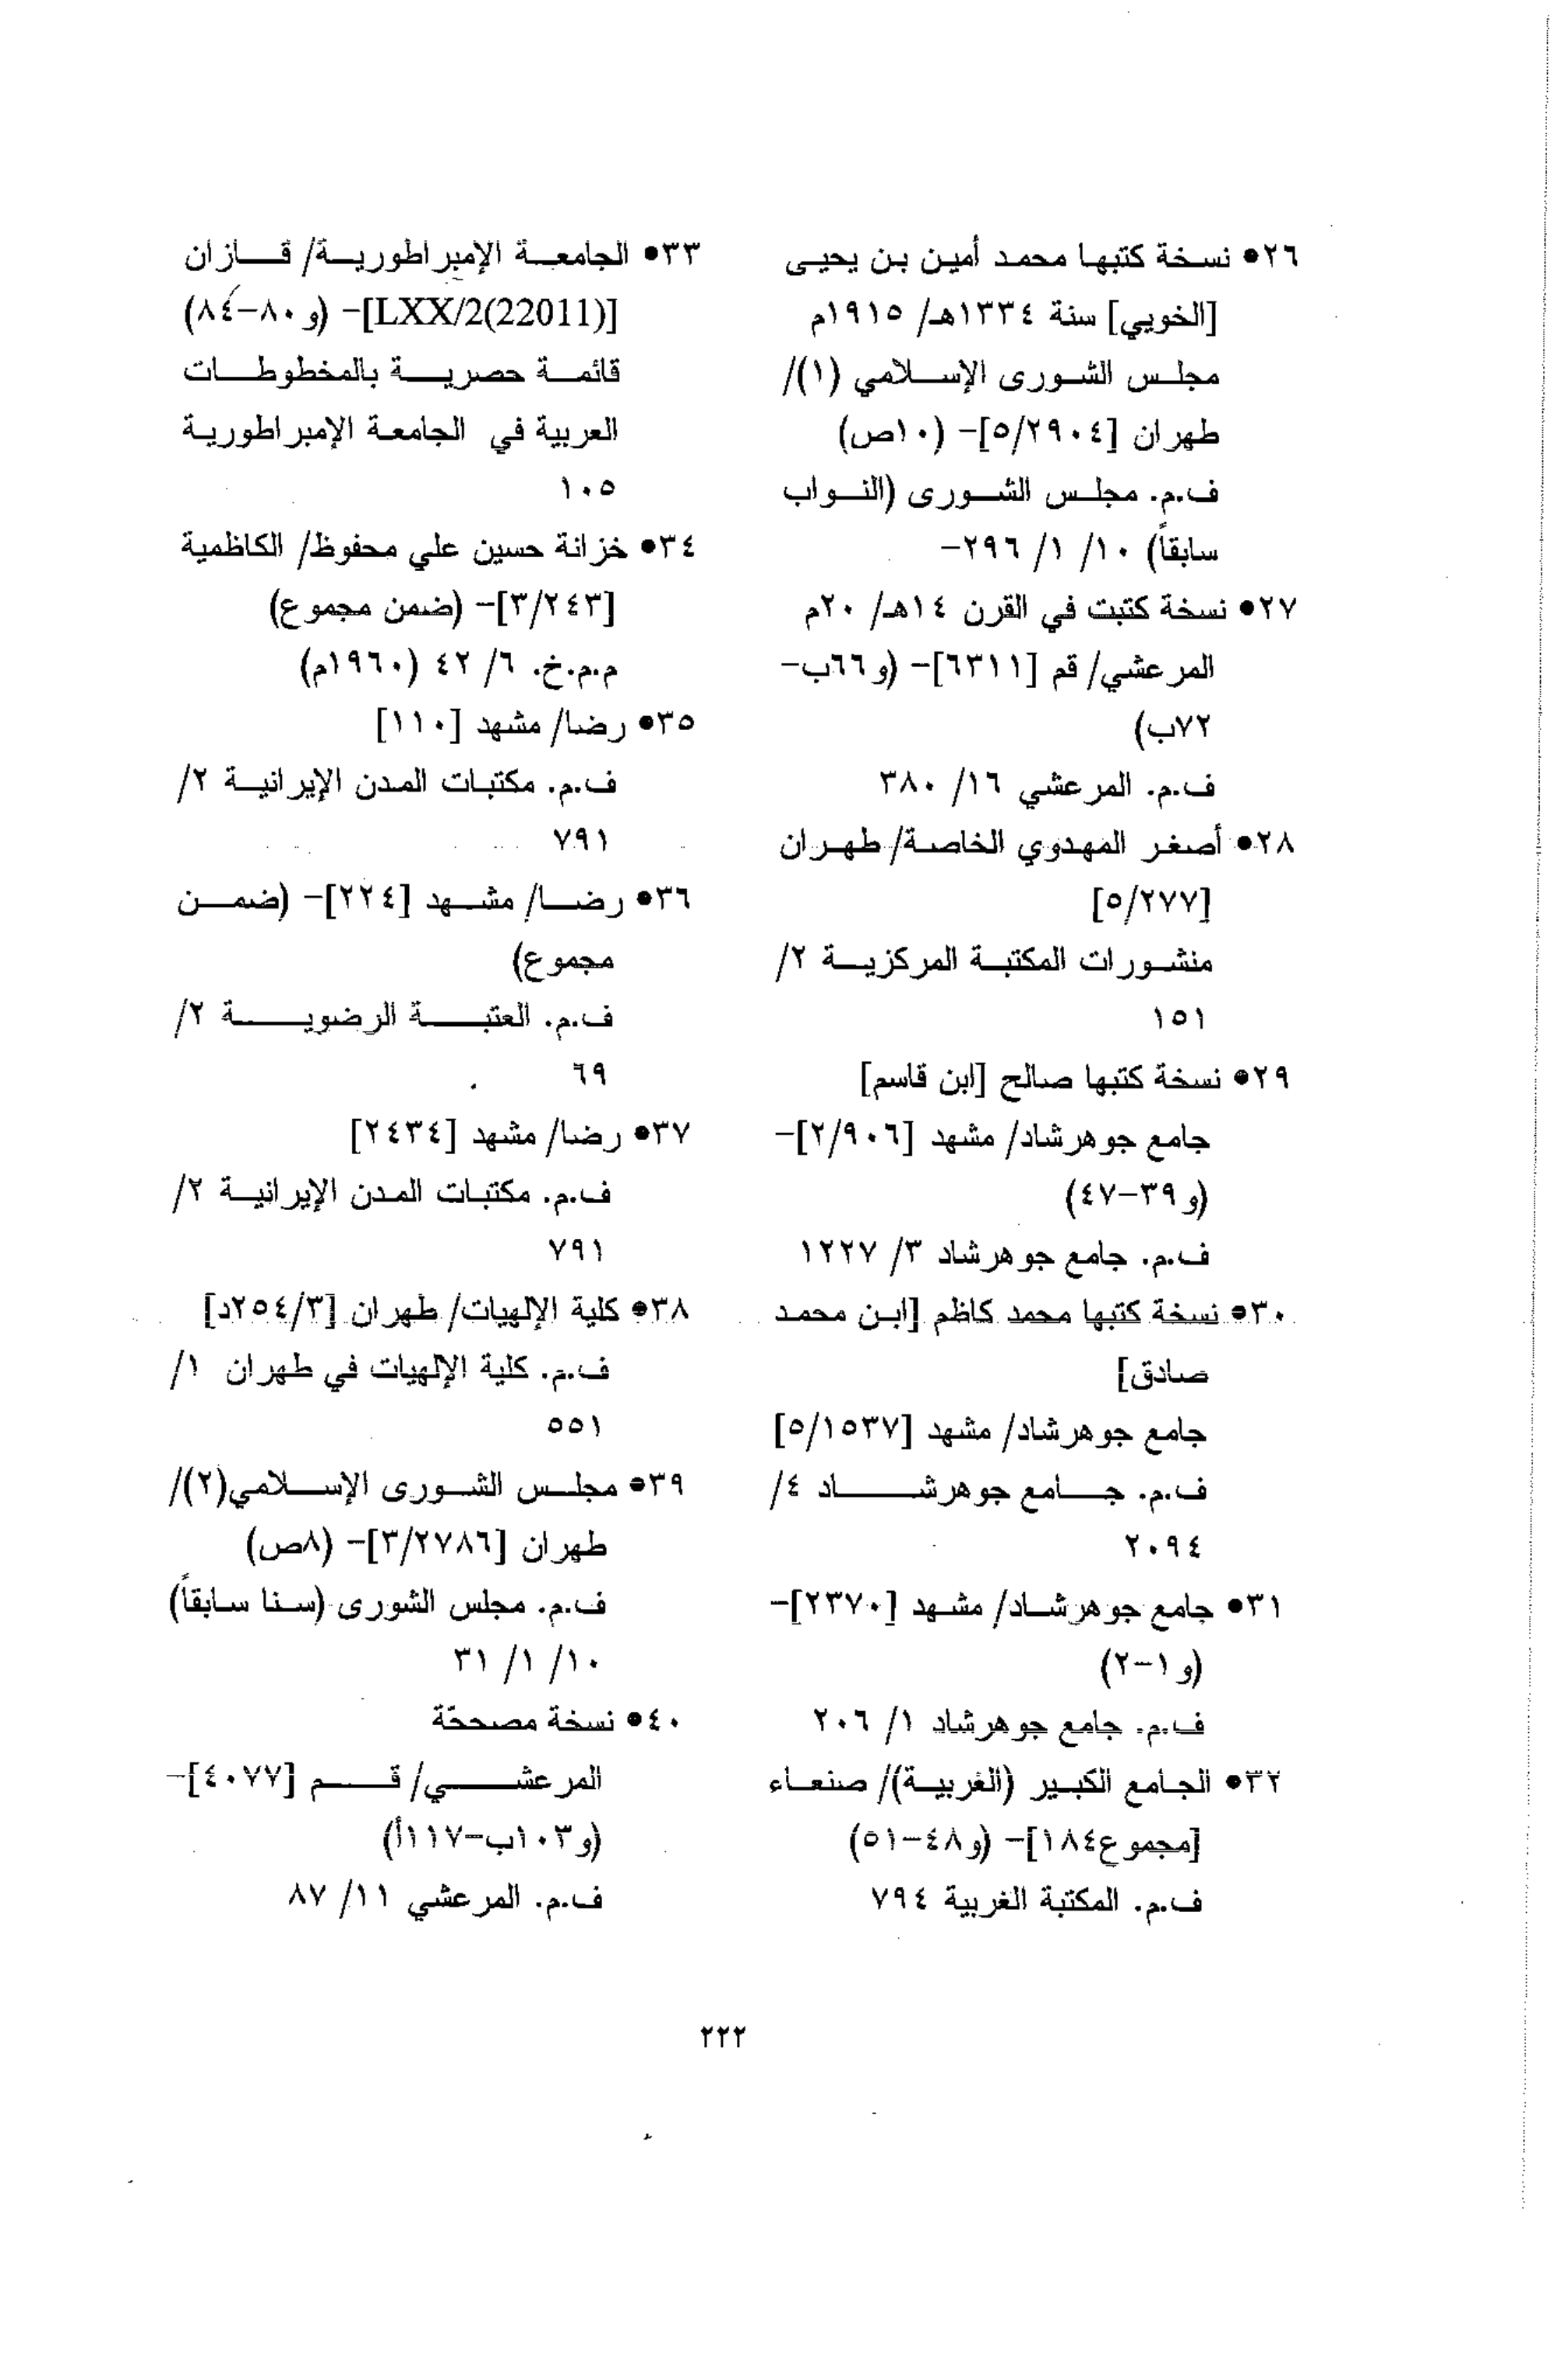 ٢٦• نسخة كتبها محمد أمين بن يحيى
[الخويي] سنة ١٣٣٤هـ/ ١٩١٥م
مجلس الشورى الإسلامي (١)/
طهران [٥/٢٩٠٤]- (١٠ص)
ف.م. مجلس الشورى (النواب
سابقاً) ١٠/ ١/ ٢٩٦-
٢٧• نسخة كتبت في القرن ١٤هـ/ ٢٠م
المرعشي/ قم [٦٣١١]- (و٦٦ب-
٧٢ب)
ف.م. المرعشي ١٦/ ٣٨٠
٢٨• أصغر المهدوي الخاصة/ طهران
[٥/٢٧٧]
منشورات المكتبة المركزية ٢/
١٥١
٢٩• نسخة كتبها صالح [ابن قاسم]
جامع جوهرشاد/ مشهد [٢/٩٠٦]-
(و٣٩-٤٧)
ف.م. جامع جوهرشاد ٣/ ١٢٢٧
٣٠• نسخة كتبها محمد كاظم [ابن محمد
صادق]
جامع جوهرشاد/ مشهد [٥/١٥٣٧]
ف.م. جامع جوهرشاد ٤/
٢٠٩٤
٣١• جامع جوهرشاد/ مشهد [٢٣٧٠]-
(و١-٢)
ف.م. جامع جوهرشاد ١/ ٢٠٦
٣٢• الجامع الكبير (الغربية)/ صنعاء
[مجموع١٨٤]- (و٤٨-٥١)
ف.م. المكتبة الغربية ٧٩٤
٣٣• الجامعة الإمبراطورية/ قازان
[LXX/2(22011)]- (و٨٠-٨٤)
قائمة حصرية بالمخطوطات
العربية في الجامعة الإمبراطورية
١٠٥
٣٤• خزانة حسين علي محفوظ/ الكاظمية
[٣/٢٤٣]- (ضمن مجموع)
م.م.خ. ٦/ ٤٢ (١٩٦٠م)
٣٥• رضا/ مشهد [١١٠]
ف.م. مكتبات المدن الإيرانية ٢/
٧٩١
٣٦• رضا/ مشهد [٢٢٤]- (ضمن
مجموع)
ف.م. العتبة الرضوية ٢/
٦٩
٣٧• رضا/ مشهد [٢٤٣٤]
ف.م. مكتبات المدن الإيرانية ٢/
٧٩١
٣٨• كلية الإلهيات/ طهران [٢٥٤/٣د]
ف.م. كلية الإلهيات في طهران ١/
٥٥١
٣٩• مجلس الشورى الإسلامي(٢)/
طهران [٣/٢٧٨٦]- (٨ص)
ف.م. مجلس الشورى (سنا سابقاً)
١٠/ ١/ ٣١
٤٠• نسخة مصححّة
المرعشي/ قم [٤٠٧٧]-
(و١٠٣ب-١١٧أ)
ف.م. المرعشي ١١/ ٨٧
٢٢٢